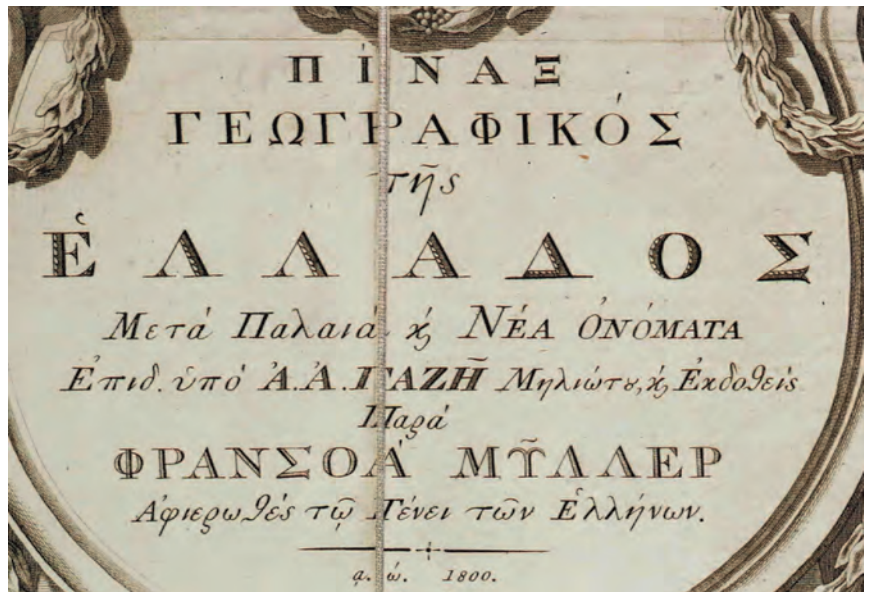 ΠΊΝΑΞ
ΓΕΩΓΡΑΦΙΚΌΣ
τῆς
ἙΛΛΆΔΟΣ
Μετά Παλαιά ϗ ΝΈΑ ὈΝΌΜΑΤΑ
Ἐπιδ. ὑπό Ἀ. Ἀ. ΓΑΖΗ͂ Μηλιώτȣ, ϗ Ἐκδοθείς
Παρά
ΦΡΑΝΣΟΆ ΜΥ͂ΛΛΕΡ
Ἀφιερωθές τῷ Γένει τῶν Ἑλλήνων.
α. ώ. 1800.